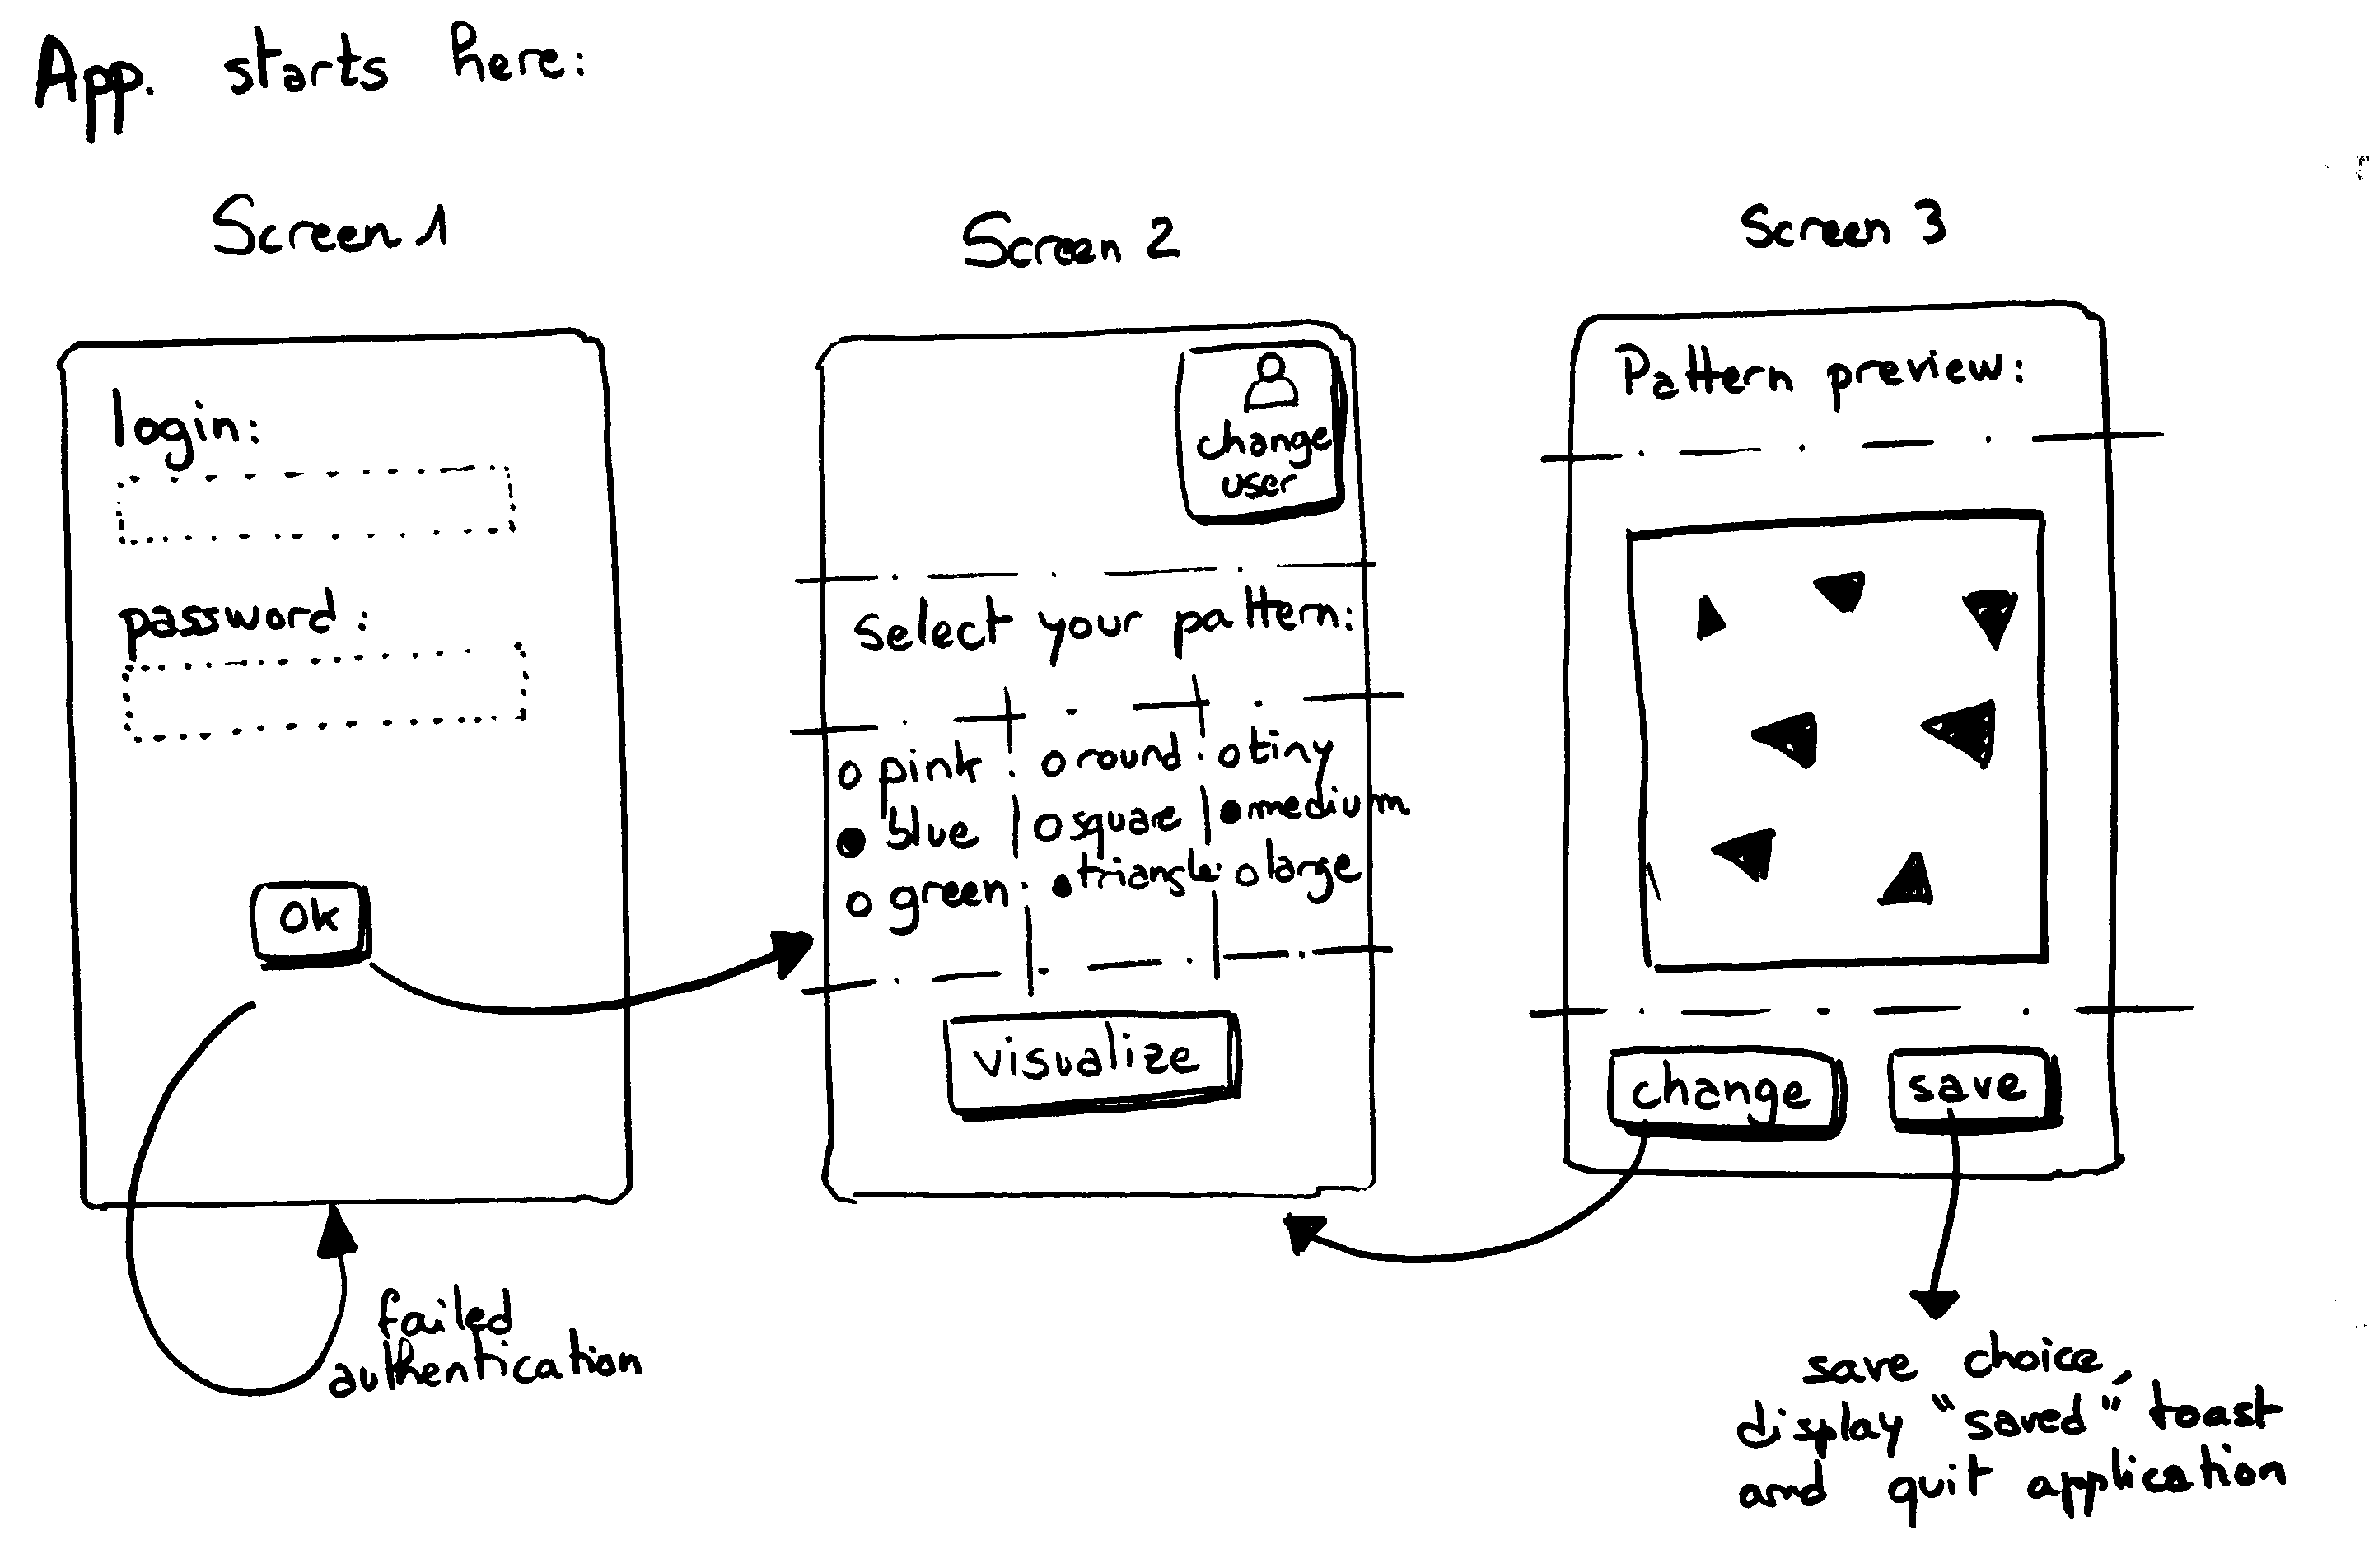 App. starts here:
Screen 1
login:
password:
Ok
failed
authentication
Screen 2
change
user
Select your pattern:
pink
blue
green
round
square
triangle
tiny
medium
large
visualize
Screen 3
Pattern preview:
change
save
save choice,
display "saved" toast
and quit application